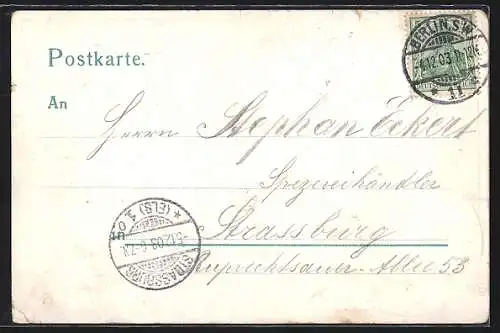 Postkarte.
BERLIN, S.W.
4.12.03.
11
An
Herrn Stephan Eckert
Spezereihändler
Strassburg
Ruprechtsauer-Allee 53
STRASSBURG
* (ELS) 4.
5.12.03.